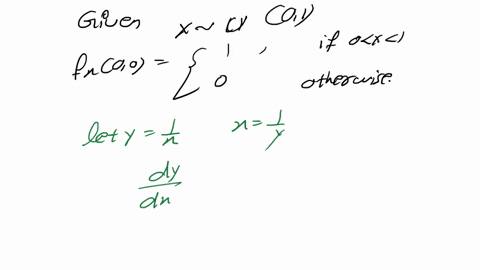 Given x ~ U (0,1)
fx(0,0) = { 1 , if 0<x<1
0 otherwise
let y = 1/x x = 1/y
dy/dx